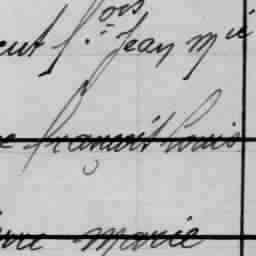 ois
ent f. Jean Mie
françoit Louis
rre Marie